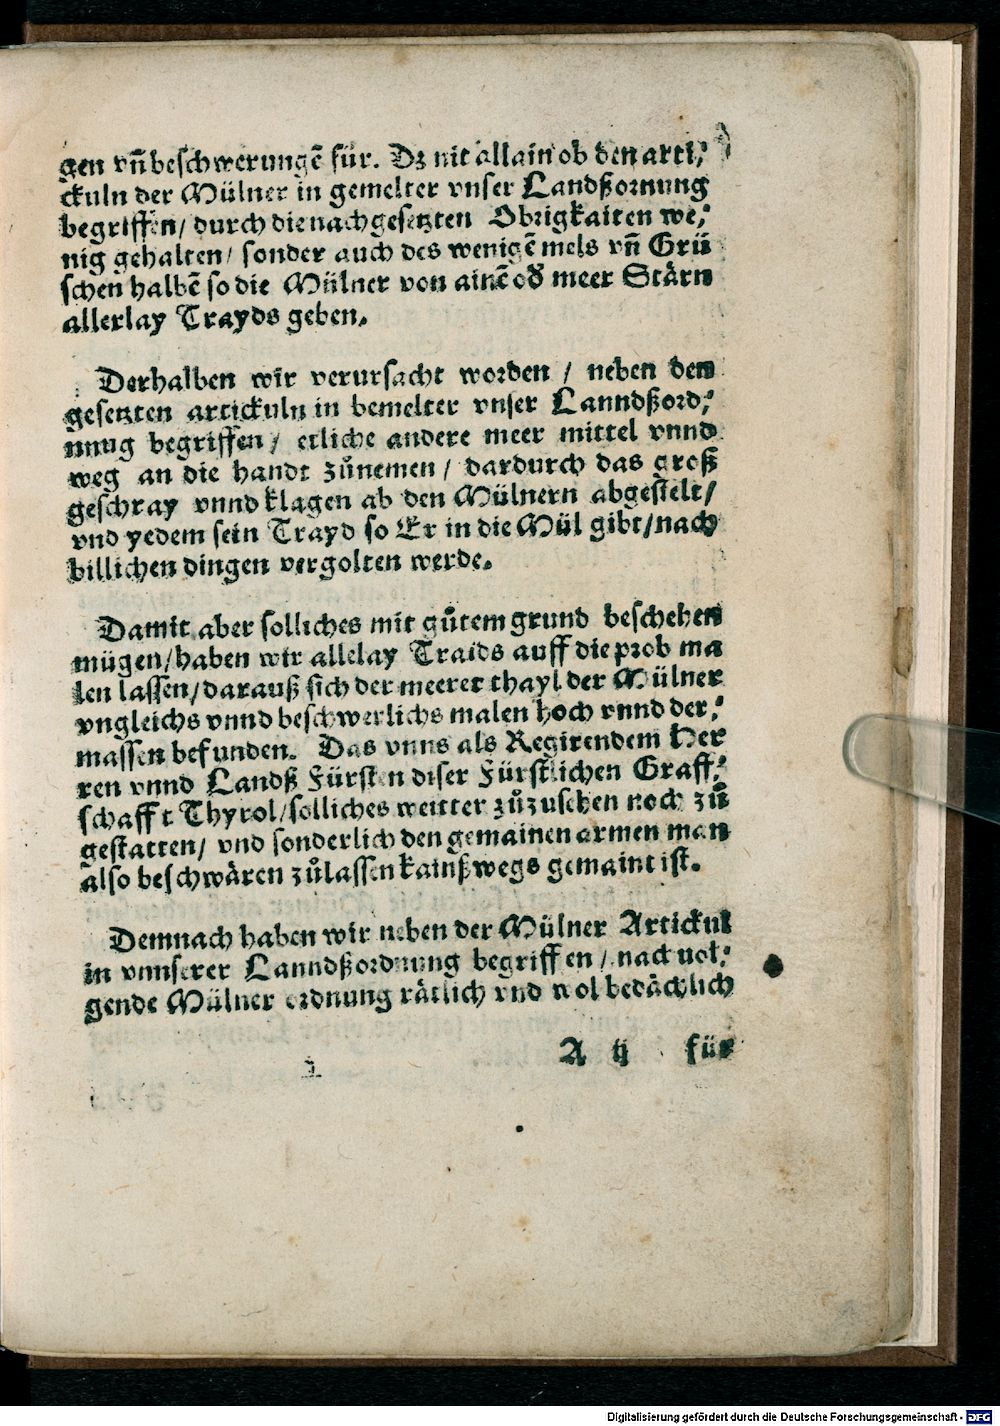 gen vñ beschwerungē für. Dz nit allain ob den arti⸗
ckuln der Mülner in gemelter vnser Landßornung
begriffen/ durch die nachgesetzten Obrigkaiten we⸗
nig gehalten/ sonder auch des wenigē mels vñ Grü
schen halbē so die Mülner von ainē od̕ meer Stärn
allerlay Trayds geben.
Derhalben wir verursacht worden / neben den
gesetzten artickuln in bemelter vnser Lanndßord⸗
nung begriffen/ etliche andere meer mittel vnnd
weg an die handt zůnemen/ dardurch das groß
geschray vnnd klagen ab den Mülnern abgestelt/
vnd yedem sein Trayd so Er in die Mül gibt/nach
billichen dingen vergolten werde.
Damit aber solliches mit gůtem grund beschehen
mügen/haben wir allelay Traids auff die prob ma
len lassen/darauß sich der meerer thayl der Mülner
vngleichs vnnd beschwerlichs malen hoch vnnd der⸗
massen befunden. Das vnns als Regirendem Her
ren vnnd Landß Fürsten diser Fürstlichen Graff⸗
schafft Thyrol/solliches weitter zůzusehen noch zů
gestatten/ vnd sonderlich den gemainen armen man
also beschwären zůlassen kainßwegs gemaint ist.
Demnach haben wir neben der Mülner Artickul
in vnnserer Lanndßordnung begriffen/ nachuol⸗
gende Mülner ordnung rätlich vnd wol bedächlich
A ij für
Digitalisierung gefördert durch die Deutsche Forschungsgemeinschaft - DFG